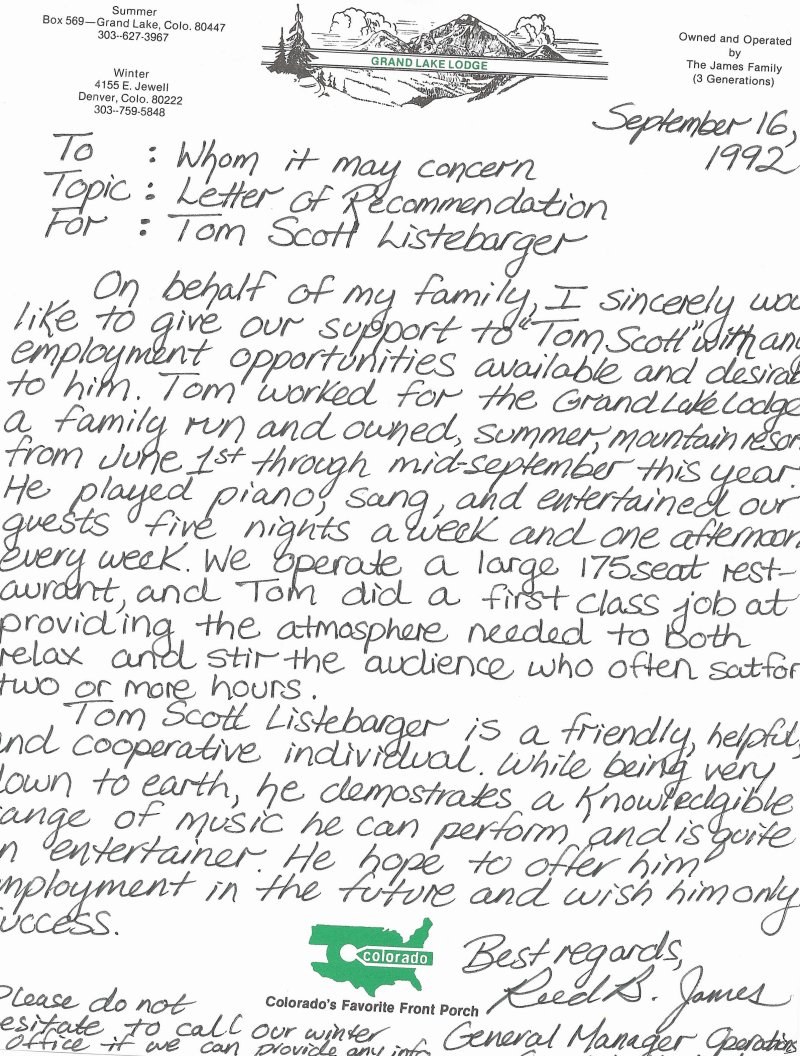 Summer
Box 569—Grand Lake, Colo. 80447
303--627-3967
Winter
4155 E. Jewell
Denver, Colo. 80222
303--759-5848
GRAND LAKE LODGE
Owned and Operated
by
The James Family
(3 Generations)
September 16,
1992
To : Whom it may concern
Topic : Letter of Recommendation
For : Tom Scott Listebarger
On behalf of my family, I sincerely wou
like to give our support to "Tom Scott" with any
employment opportunities available and desirab
to him. Tom worked for the Grand Lake Lodge
a family run and owned, summer, mountain resor
from June 1st through mid-september this year.
He played piano, sang, and entertained our
guests five nights a week and one afternoon
every week. We operate a large 175 seat rest-
aurant, and Tom did a first class job at
providing the atmosphere needed to both
relax and stir the audience who often sat for
two or more hours.
Tom Scott Listebarger is a friendly, helpful,
and cooperative individual. While being very
down to earth, he demostrates a knowledgible
range of music he can perform and is quite
n entertainer. He hope to offer him
mployment in the future and wish him only
success.
colorado
Colorado's Favorite Front Porch
Best regards,
Reed B. James
General Manager Operations
Please do not
esitate to call our winter
office if we can provide any info